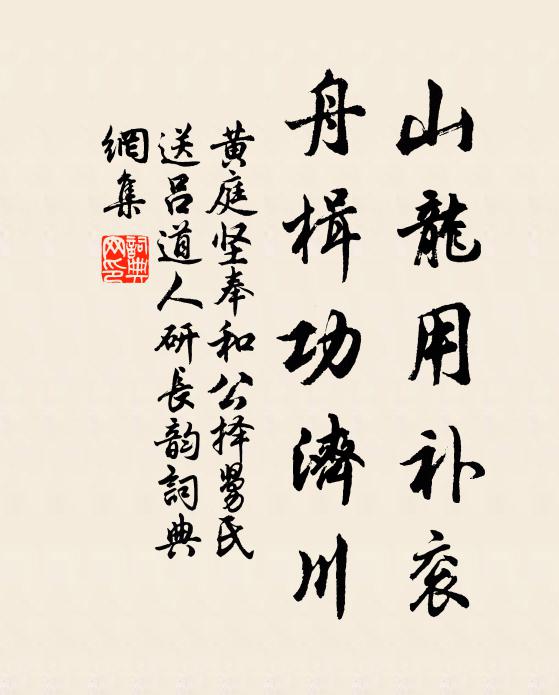 山龍用补衮
舟楫功濟川
黄庭坚奉和公择舅氏
送吕道人研長韵詞典
網集
詞典网印